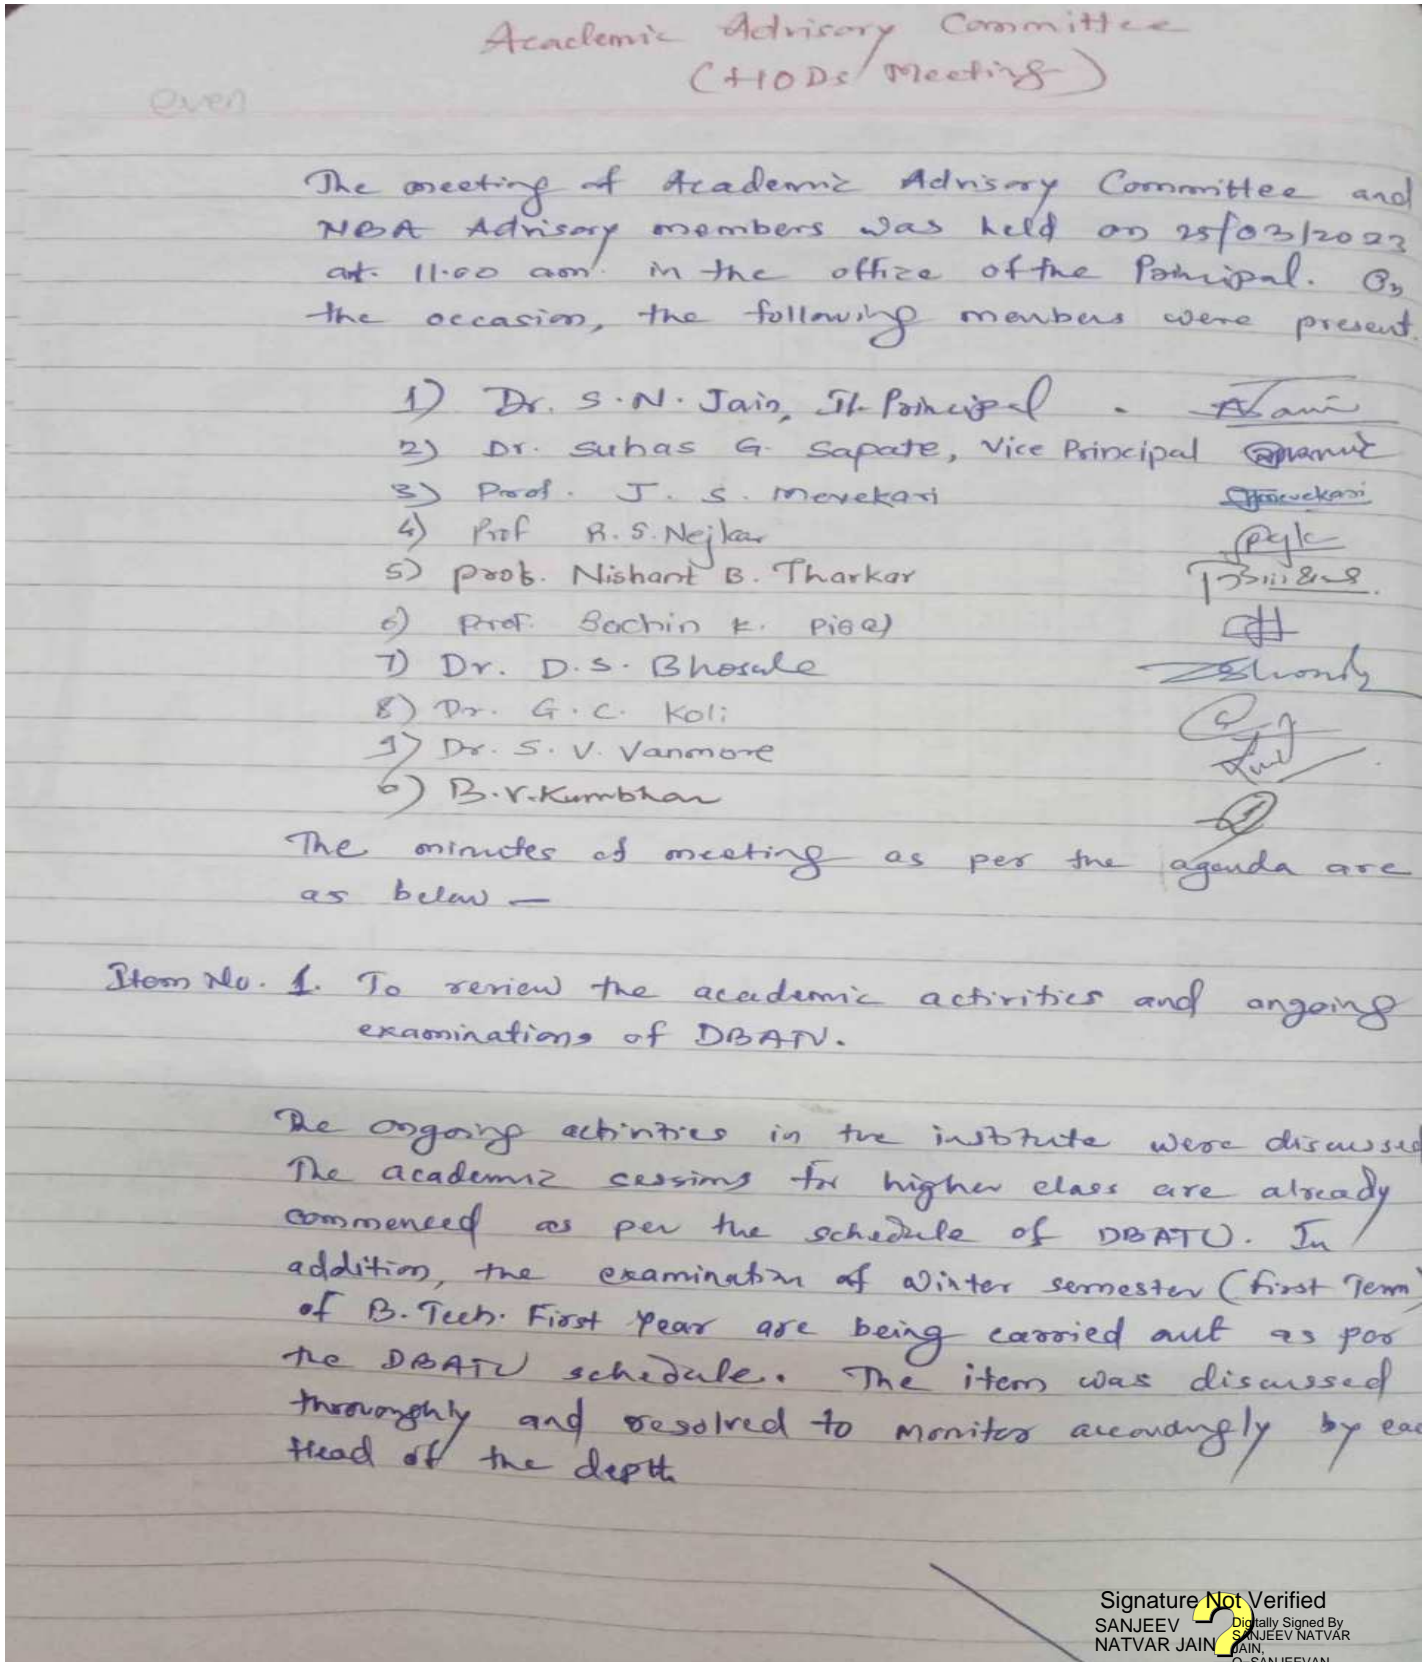 Academic Advisory Committee
(HODs Meeting)
even
The meeting of Academic Advisory Committee and
NBA Advisory members was held on 25/03/2023
at 11.00 am. in the office of the Principal. On
the occasion, the following members were present.
1) Dr. S.N. Jain, I/c Principal
2) Dr. Suhas G. Sapate, Vice Principal
3) Prof. J. S. Mevekari
4) Prof R.S. Nejkar
5) Prof. Nishant B. Tharkar
6) Prof. Sachin K.
7) Dr. D.S. Bhosale
8) Dr. G.C. Koli
9) Dr. S.V. Vanmore
6) B.V. Kumbhar
The minutes of meeting as per the agenda are
as below —
Item No. 1. To review the academic activities and ongoing
examinations of DBATU.
The ongoing activities in the institute were discussed
The academic cessions for higher class are already
commenced as per the schedule of DBATU. In
addition, the examination of Winter semester (first Term)
of B.Tech. First Year are being carried out as per
the DBATU schedule. The item was discussed
throroughly and resolved to monitor accordingly by eac
Head of the deptt.
Signature Not Verified
SANJEEV
NATVAR JAIN
Digitally Signed By
SANJEEV NATVAR
JAIN,
O=SANJEEVAN